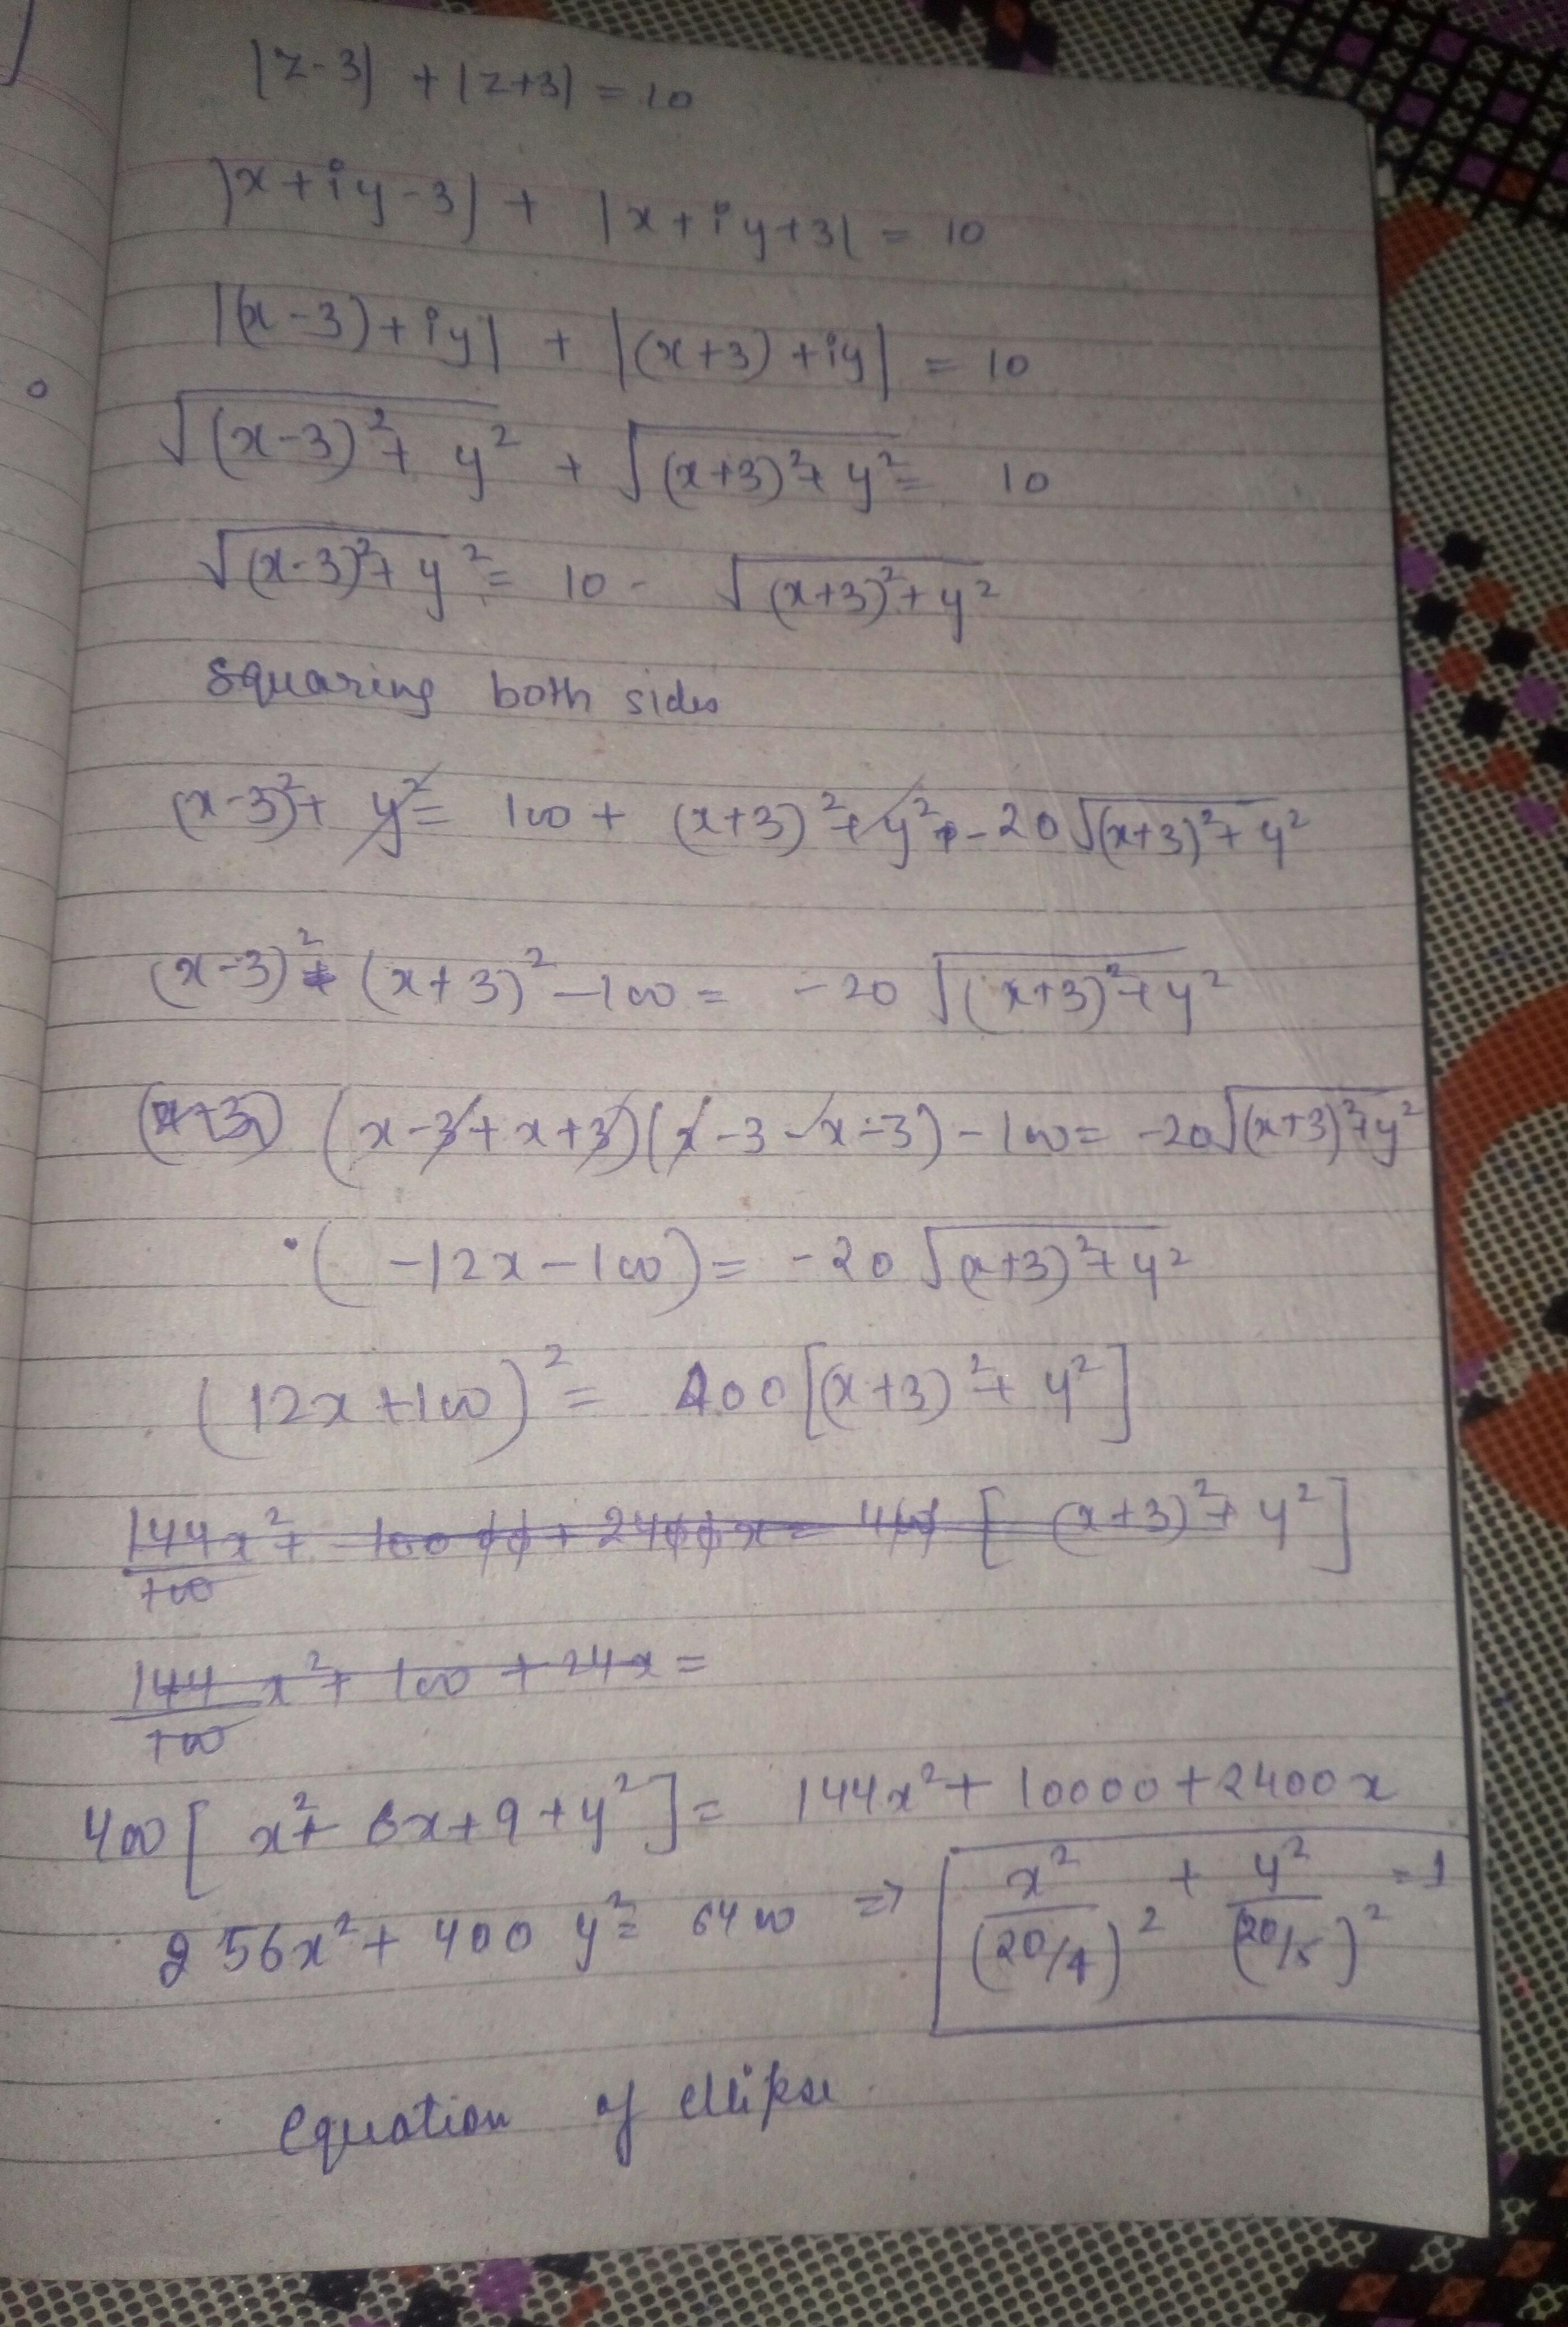 |z-3| + |z+3| = 10
|x+iy-3| + |x+iy+3| = 10
|(x-3)+iy| + |(x+3)+iy| = 10
√((x-3)²+y²) + √((x+3)²+y²) = 10
√((x-3)²+y²) = 10 - √((x+3)²+y²)
squaring both sides
(x-3)²+ y² = 100 + (x+3)²+y² -20√((x+3)²+y²)
(x-3)² - (x+3)² -100 = -20 √((x+3)²+y²)
(x+3) (x-3+x+3)(x-3-x-3) -100 = -20√((x+3)²+y²)
(-12x-100) = -20 √((x+3)²+y²)
(12x+100)² = 400[(x+3)²+ y²]
144x²+ 10000 + 2400x = 400 [ (x+3)²+ y²]
100
144 x²+ 100 + 24x =
100
400[ x²+ 6x+9+y²] = 144x²+ 10000+2400x
256x²+ 400 y² = 6400 => x²/(20/4)² + y²/(20/5)² = 1
equation of ellipse.